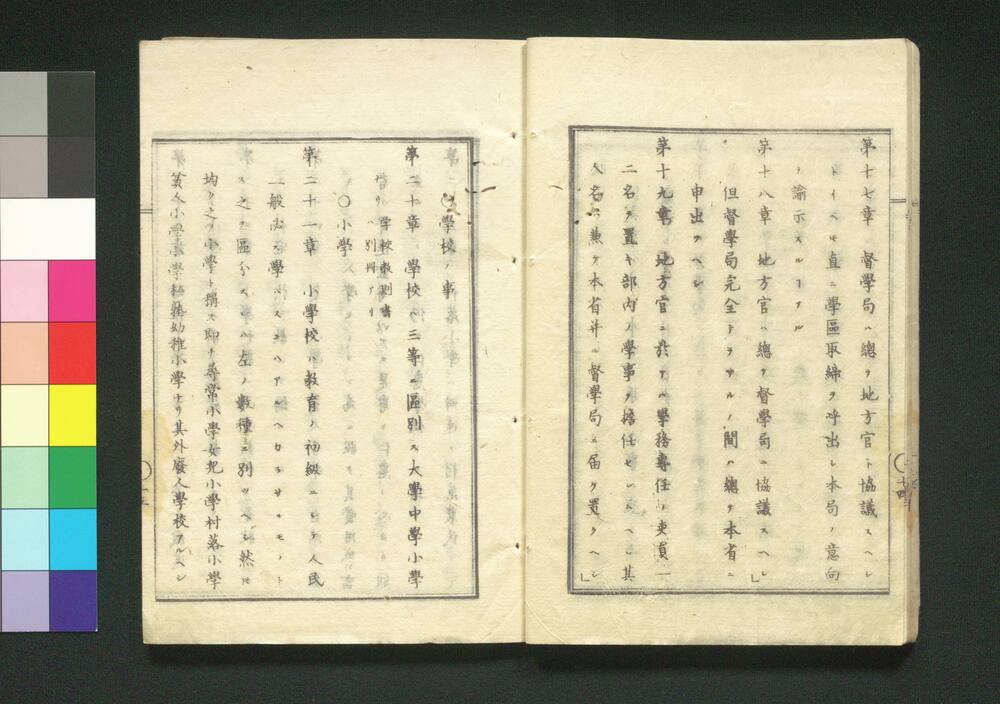 第十七章　督學局ハ總テ地方官ト協議スヘシ
トイヘモ直ニ學區取締ヲ呼出シ本局ノ意向
ヲ諭示スルヿアル
第十八章　地方官ハ總テ督學局ニ協議スヘシ
但督學局完全トラサルノ間ハ總テ本省ニ
申出ツヘシ
第十九章　地方官ニ於テハ學務專任ノ吏員一
二名ヲ置キ部内ノ學事ヲ擔任セシムヘシ其
人名ハ兼テ本省并ニ督學局ニ届ケ置クヘシ
〇學校ノ事
第二十章　學校ハ三等ニ區別ス大學中學小學
ナリ　學校敎則書
ハ別冊アリ
〇小學
第二十一章　小學校ハ教育ノ初級ニシテ人民
一般必ス學ハスンハアルヘカラサルモノトス
之ヲ區分スレハ左ノ數種ニ別ツヘシ然㪽
均ク之ヲ小學ト稱ス即チ尋常小學女兒小學村落小學
貧人小學小學私塾幼稚小學ナリ其外廢人學校アルヘシ
十四